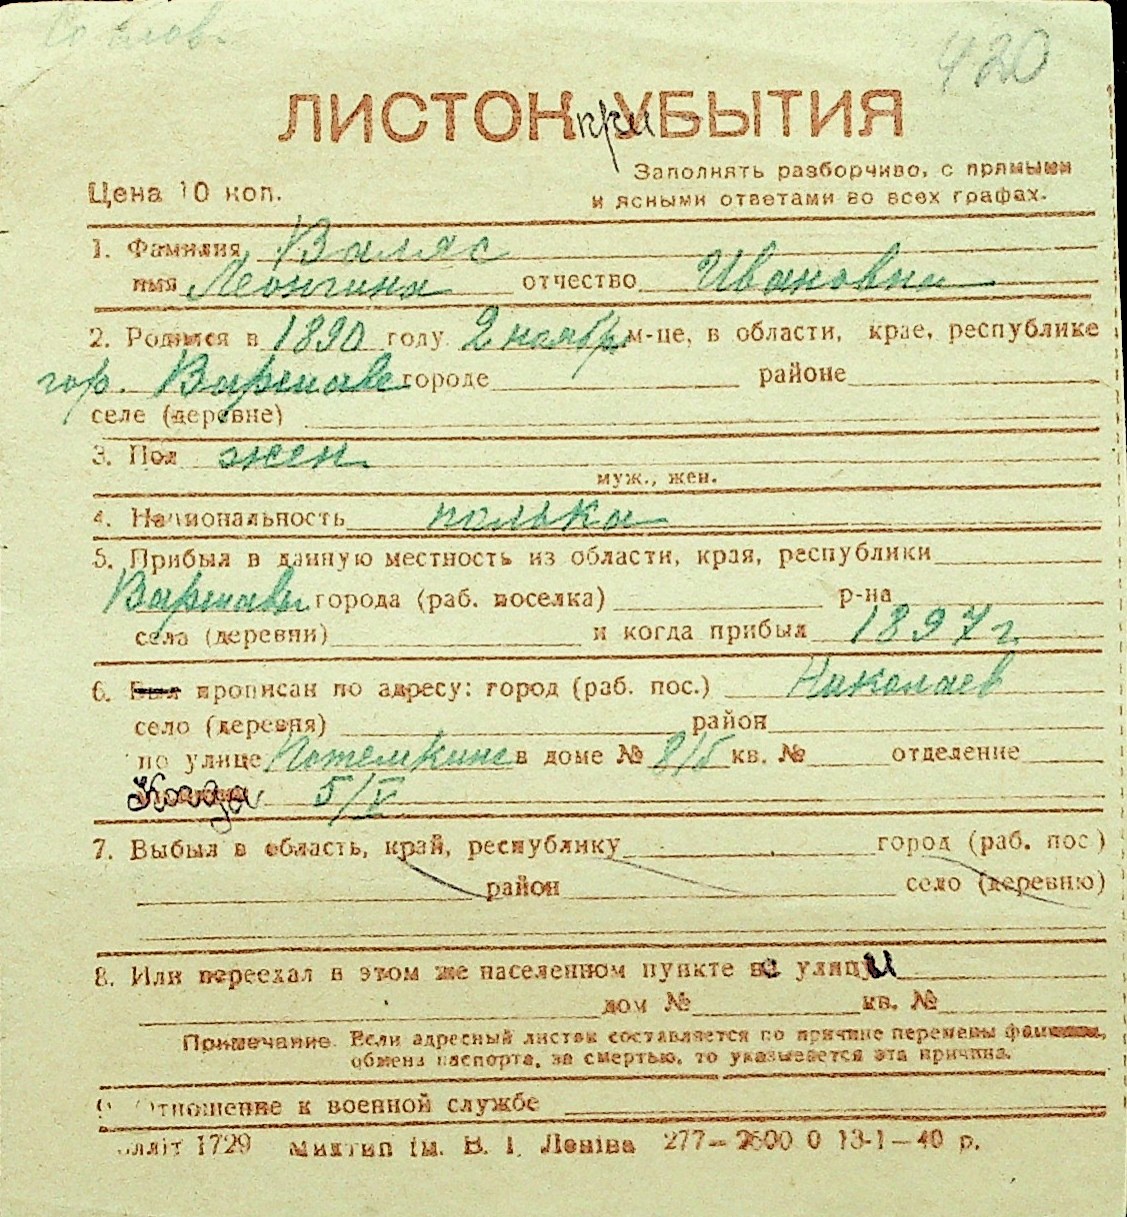 420
ЛИСТОК при УБЫТИЯ
Заполнять разборчиво, с прямыми
Цена 10 коп.
и ясными ответами во всех графах.
1. Фамилия Валяс
имя Леонгина отчество Ивановна
2. Родился в 1890 году 2 ноябр м-це, в области, крае, республике
гор. Варшаве городе районе
селе (деревне)
3. Пол жен
муж., жен.
4. Национальность полька
5. Прибыл в данную местность из области, края, республики
Варшавы города (раб. поселка) р-на
села (деревни) и когда прибыл 1897 г
6. Был прописан по адресу: город (раб. пос.) Николаев
село (деревня) район
по улице Потемкинс в доме № 8/б кв. № отделение
Когда 5/V
7. Выбыл в область, край, республику город (раб. пос)
район село (деревню)
8. Или переехал в этом же населенном пункте с улицы
дом № кв. №
Примечание. Если адресный листок составляется по причине перемены фамилии,
обмена паспорта, за смертью, то указывается эта причина.
9. Отношение к военной службе
лліт 1729 Миктип ім. В. І. Леніна 277—2600 0 13-1—40 р.